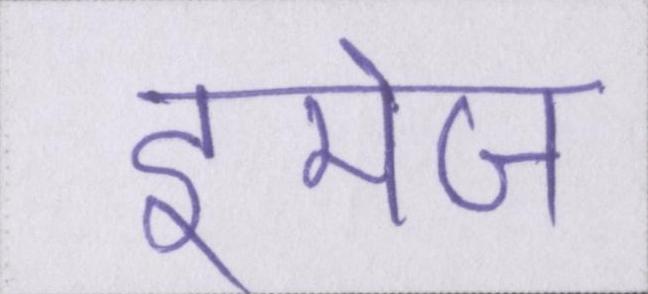 इमेज